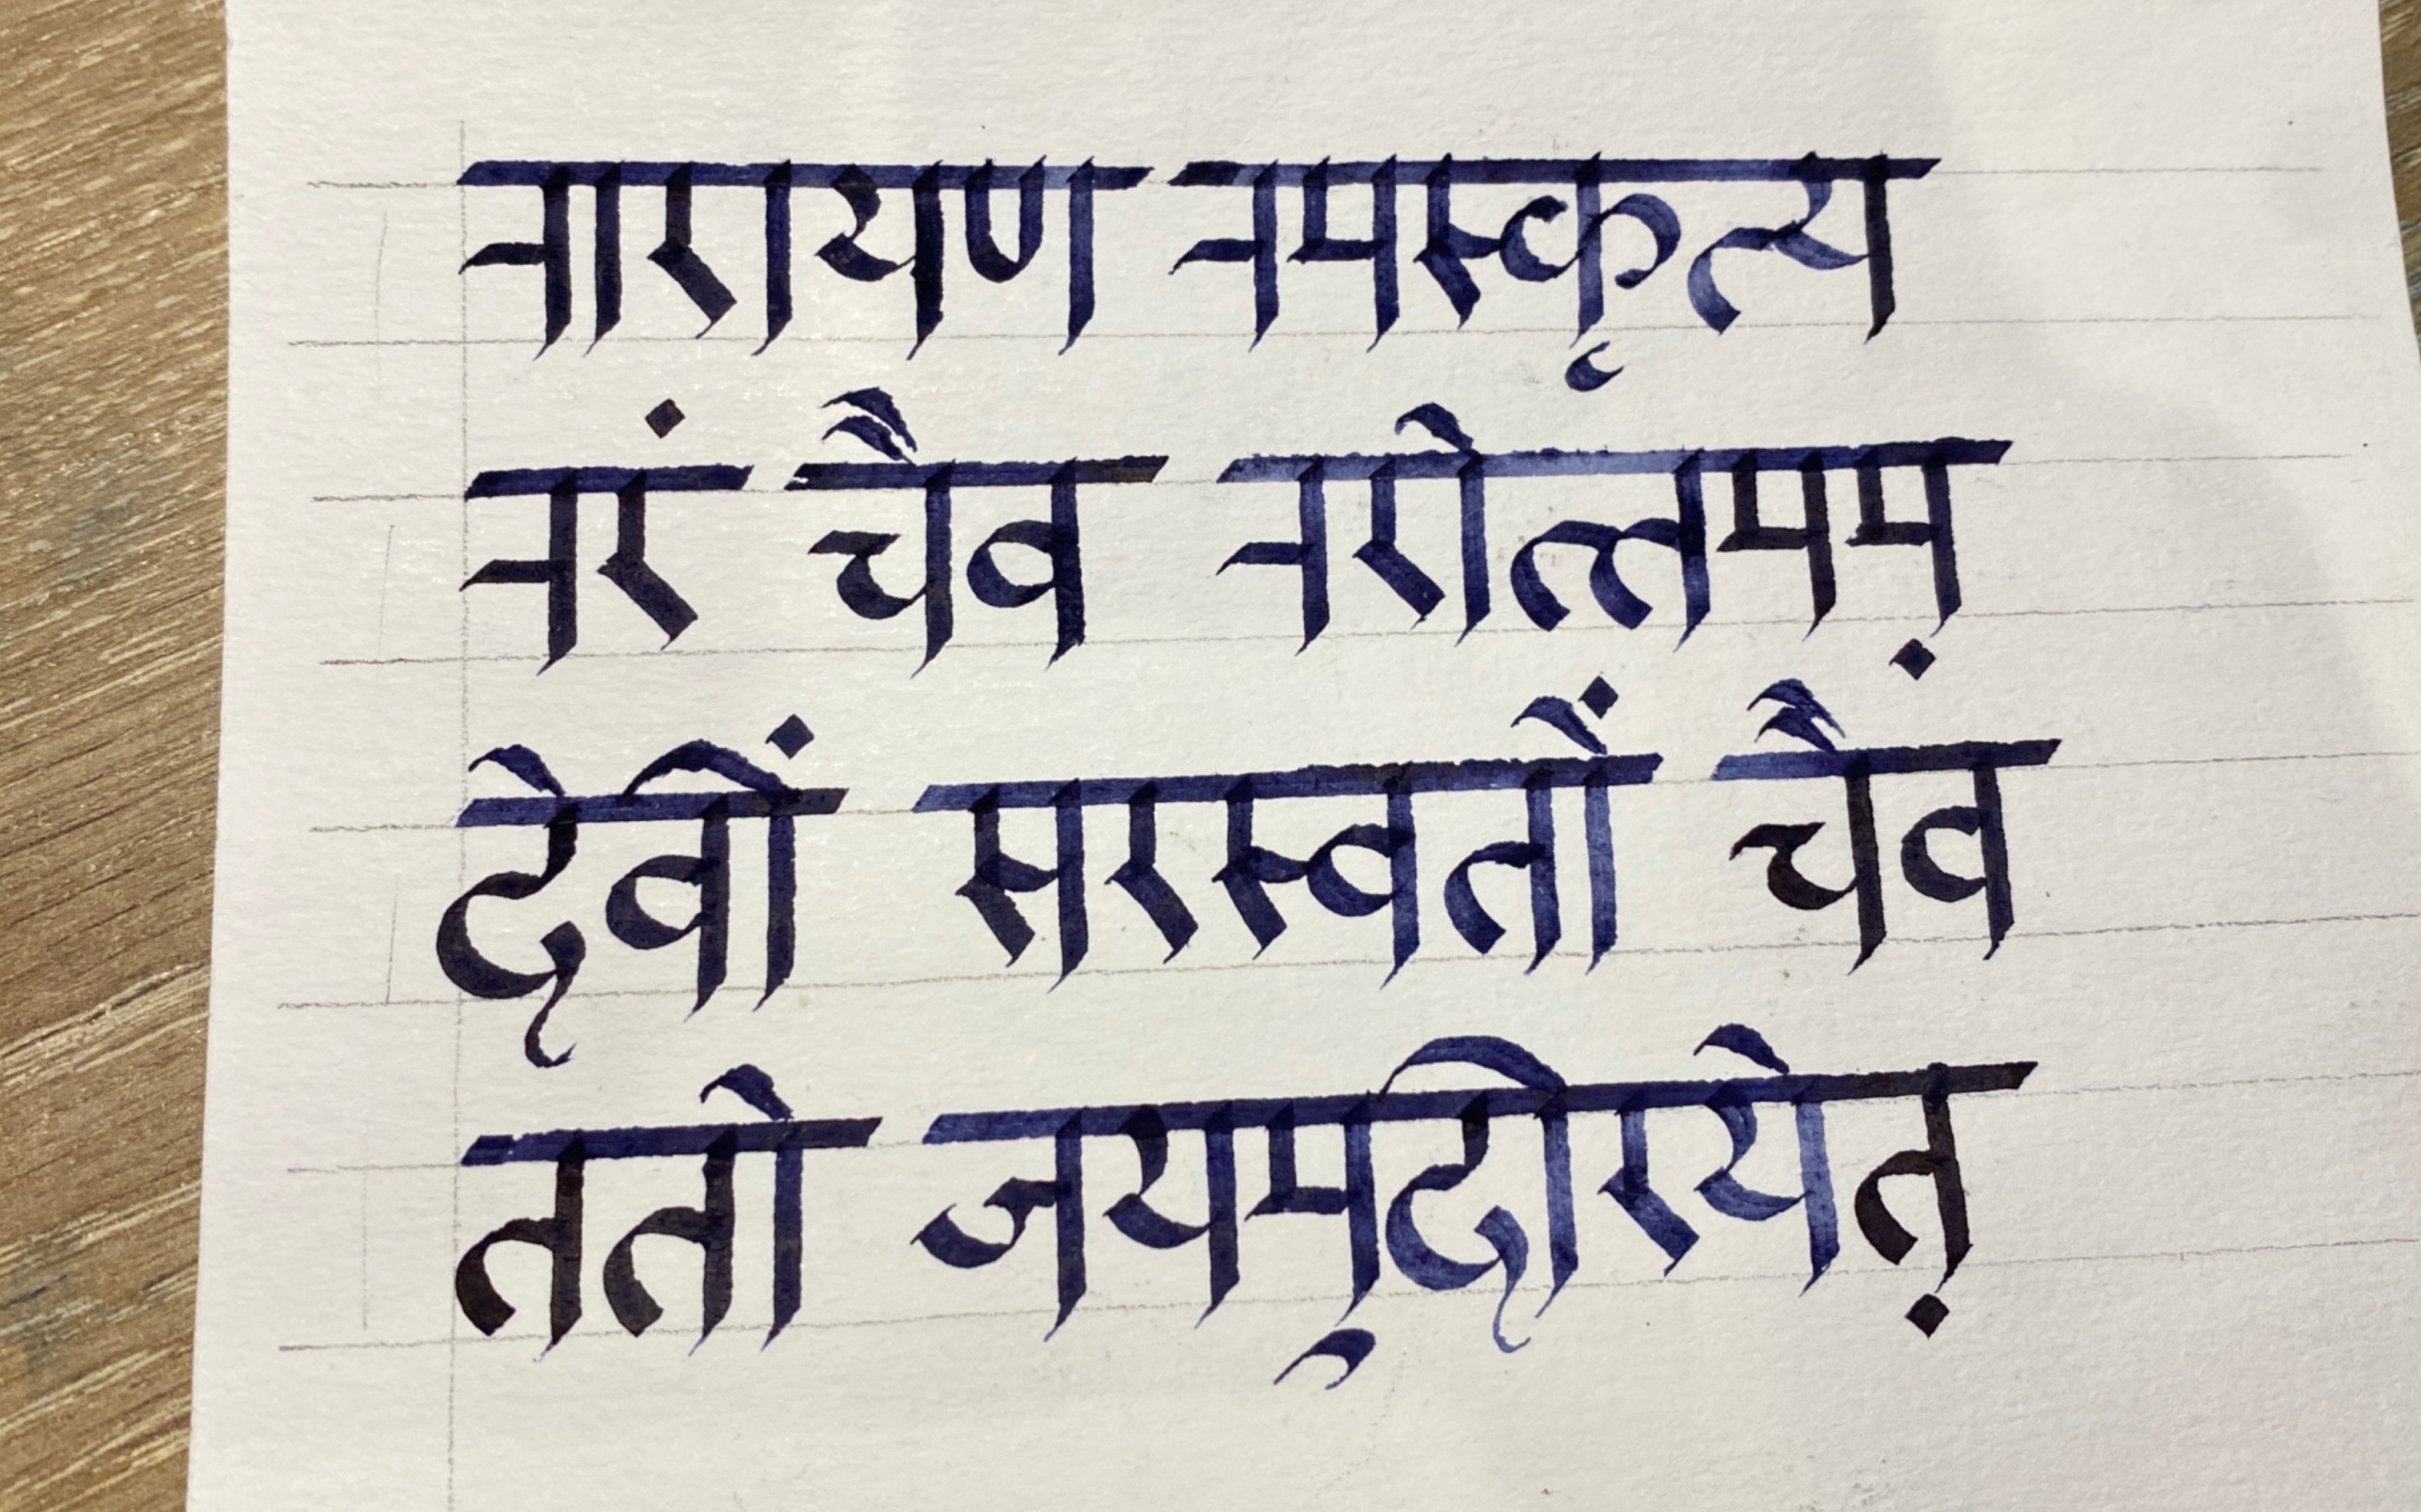 नारायण नमस्कृत्य
नरं चैव नरोत्तमम्
देवीं सरस्वतों चैव
ततो जयमुदीरयेत्